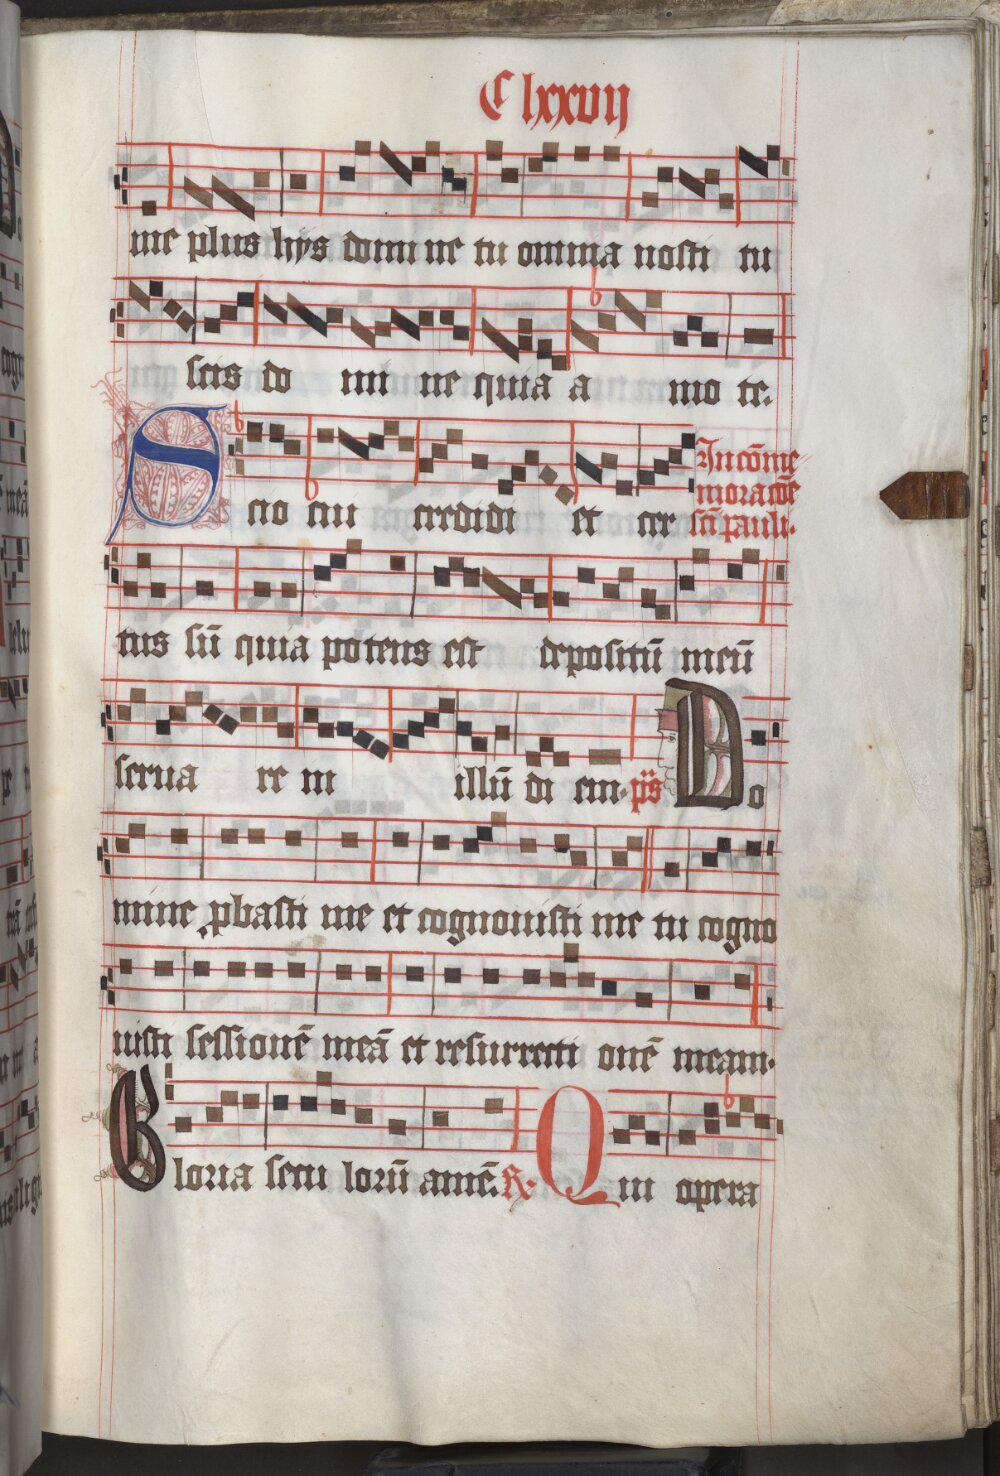 C lxxvij
me plus hijs domi ne tu omnia nosti tu
scis do mi ne quia a mo te.
Scio cui credidi et cer
In cōme
moracōe
scī pauli.
tus sū quia potens est depositū meū
serua re m illū di em. p̄s Do
mine ꝓbasti me et cognouisti me tu cogno
uisti sessionē meā et resurrecti onē meam.
Gloria secu lorū amē. ℟. Qui opera